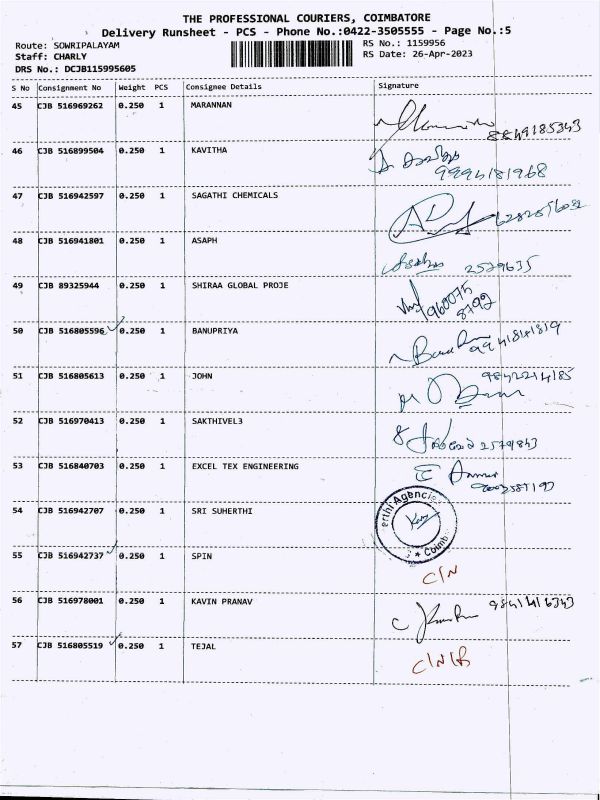 THE PROFESSIONAL COURIERS, COIMBATORE
Delivery Runsheet - PCS - Phone No.:0422-3505555 - Page No.:5
Route: SOWRIPALAYAM
Staff: CHARLY
DRS No.: DCJB115995605
RS No.: 1159956
RS Date: 26-Apr-2023
S No Consignment No Weight PCS Consignee Details Signature
45 CJB 516969262 0.250 1 MARANNAN
8849185343
46 CJB 516899504 0.250 1 KAVITHA
9994181968
47 CJB 516942597 0.250 1 SAGATHI CHEMICALS
48 CJB 516941801 0.250 1 ASAPH
2529635
49 CJB 89325944 0.250 1 SHIRAA GLOBAL PROJE
960075
8792
50 CJB 516805596 0.250 1 BANUPRIYA
9941841819
51 CJB 516805613 0.250 1 JOHN
9842214185
52 CJB 516970413 0.250 1 SAKTHIVEL3
2579843
53 CJB 516840703 0.250 1 EXCEL TEX ENGINEERING
54 CJB 516942707 0.250 1 SRI SUHERTHI
erthi Agencie
Coimb
55 CJB 516942737 0.250 1 SPIN
C/N
56 CJB 516978001 0.250 1 KAVIN PRANAV
9841416343
57 CJB 516805519 0.250 1 TEJAL